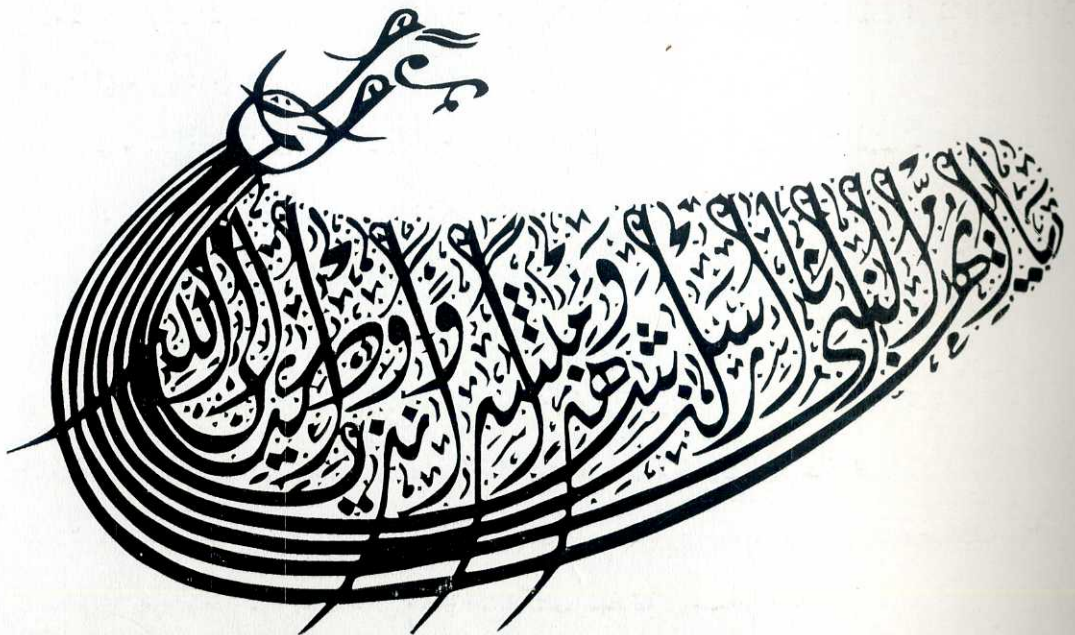 يا ايها النبي انا ارسلنك شهدا ومبشرا ونذيرا وداعيا الى الله